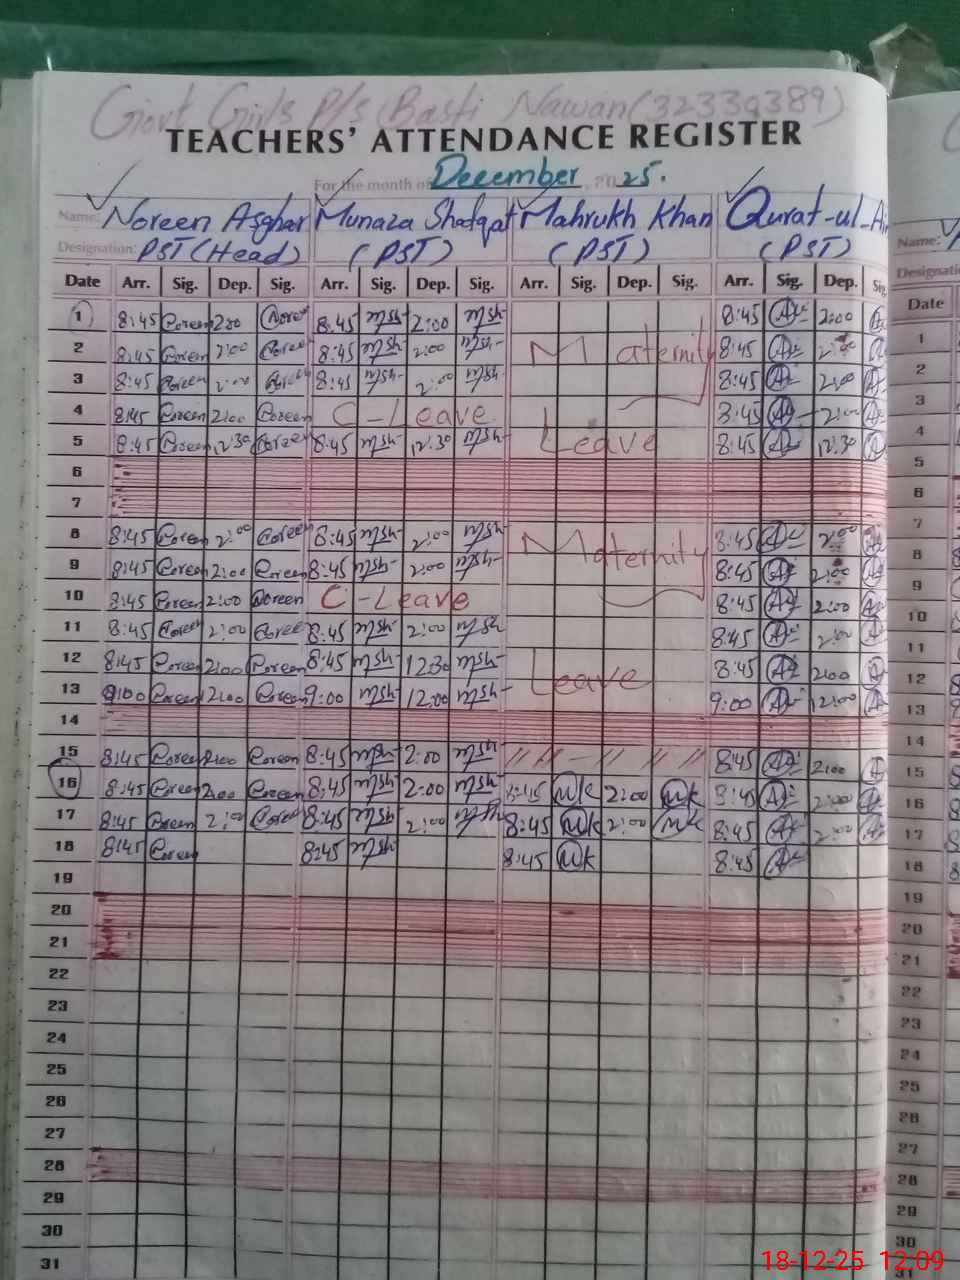 Govt Girls P/s Basti Nawan (32330389)
TEACHERS' ATTENDANCE REGISTER
For the month of December, 2025.
Name: Noreen Asghar Munaza Shafqat Mahrukh Khan Qurat-ul-Ai
Designation: PST (Head) (PST) (PST) (PST)
Date Arr. Sig. Dep. Sig. Arr. Sig. Dep. Sig. Arr. Sig. Dep. Sig. Arr. Sig. Dep. Sig.
1 8:45 Noreen 2:00 Noreen 8:45 Msh 2:00 Msh 8:45 2:00
2 8:45 Noreen 2:00 Noreen 8:45 Msh 2:00 Msh Maternity 8:45 2:00
3 8:45 Noreen 2:00 Noreen 8:45 Msh 2:00 Msh 8:45 2:00
4 8:45 Noreen 2:00 Noreen C-Leave 8:45 2:00
5 8:45 Noreen 12:30 Noreen 8:45 Msh 12:30 Msh Leave 8:45 12:30
6
7
8 8:45 Noreen 2:00 Noreen 8:45 Msh 2:00 Msh Maternity 8:45 2:00
9 8:45 Noreen 2:00 Noreen 8:45 Msh 2:00 Msh 8:45 2:00
10 8:45 Noreen 2:00 Noreen C-Leave 8:45 2:00
11 8:45 Noreen 2:00 Noreen 8:45 Msh 2:00 Msh 8:45 2:00
12 8:45 Noreen 2:00 Noreen 8:45 Msh 12:30 Msh Leave 8:45 2:00
13 9:00 Noreen 2:00 Noreen 9:00 Msh 12:00 Msh 9:00 12:00
14
15 8:45 Noreen 2:00 Noreen 8:45 Msh 2:00 Msh // // - // // // 8:45 2:00
16 8:45 Noreen 2:00 Noreen 8:45 Msh 2:00 Msh 8:45 Mk 2:00 Mk 8:45 2:00
17 8:45 Noreen 2:00 Noreen 8:45 Msh 2:00 Msh 8:45 Mk 2:00 Mk 8:45 2:00
18 8:45 Noreen 8:45 Msh 8:45 Mk 8:45
19
20
21
22
23
24
25
26
27
28
29
30
31
Name:
Designatio
Date
1
2
3
4
5
6
7
8
9
10
11
12
13
14
15
16
17
18
19
20
21
22
23
24
25
26
27
28
29
30
31
18-12-25 12:09